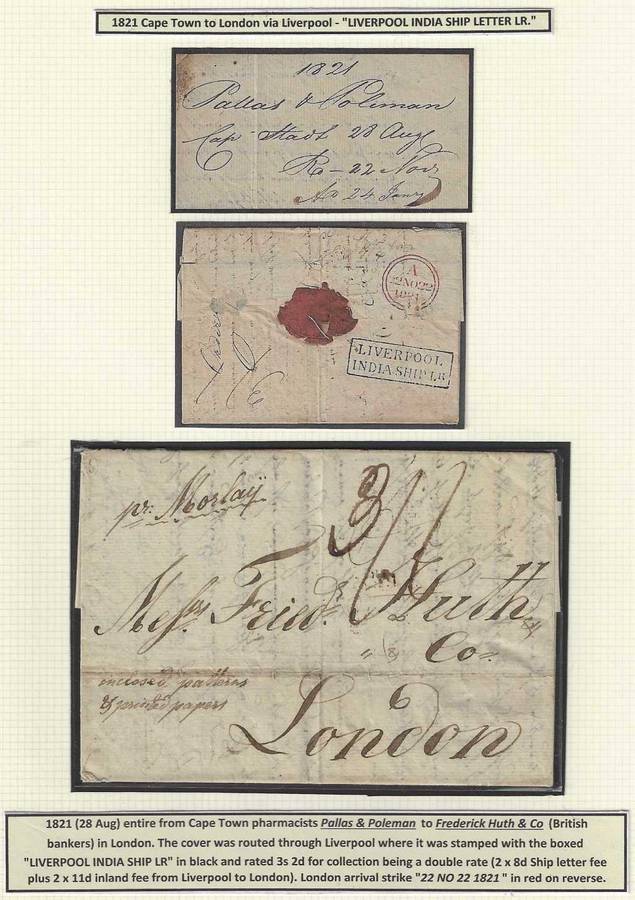 1821 Cape Town to London via Liverpool - "LIVERPOOL INDIA SHIP LETTER LR."
1821
Pallas & Poleman
Cap Stadt 28 Aug
R - 22 Nov
A 24 Jany
A
22 NO 22
1821
LIVERPOOL
INDIA SHIP LR
pr. Morlaÿ
3/
Messrs Fried. Huth &
Co.
inclosed patterns
& printed papers
London
1821 (28 Aug) entire from Cape Town pharmacists Pallas & Poleman to Frederick Huth & Co (British
bankers) in London. The cover was routed through Liverpool where it was stamped with the boxed
"LIVERPOOL INDIA SHIP LR" in black and rated 3s 2d for collection being a double rate (2 x 8d Ship letter fee
plus 2 x 11d inland fee from Liverpool to London). London arrival strike "22 NO 22 1821 " in red on reverse.